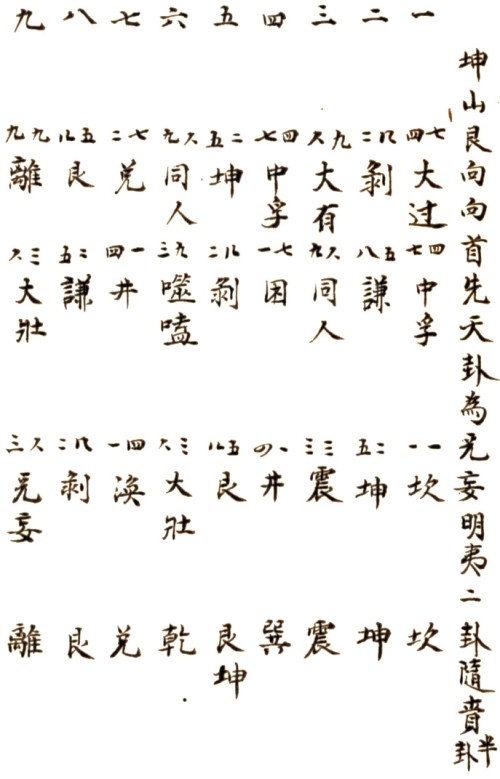 坤山艮向向首先天卦為无妄明夷二卦隨賁半卦
一 七四大过 四七中孚 一一坎 坎
二 八二剝 五八謙 二五坤 坤
三 九六大有 六九同人 三三震 震
四 四七中孚 七一困 一四井 巽
五 二五坤 八二剝 五八艮 艮坤
六 六九同人 九三噬嗑 三六大壯 乾
七 七二兌 一四井 四一渙 兌
八 五八艮 二五謙 八二剝 艮
九 九九離 三六大壯 六三无妄 離